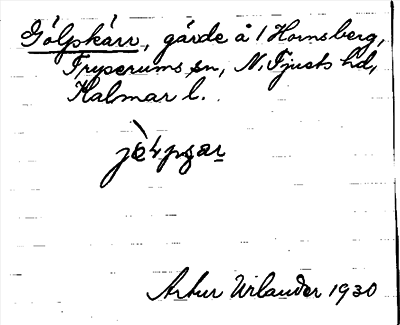 Gölpkärr, gärde å 1 Hornsberg,
Fryserums sn, N. Tjusts hd,
Kalmar l.
Artur Wilander 1930